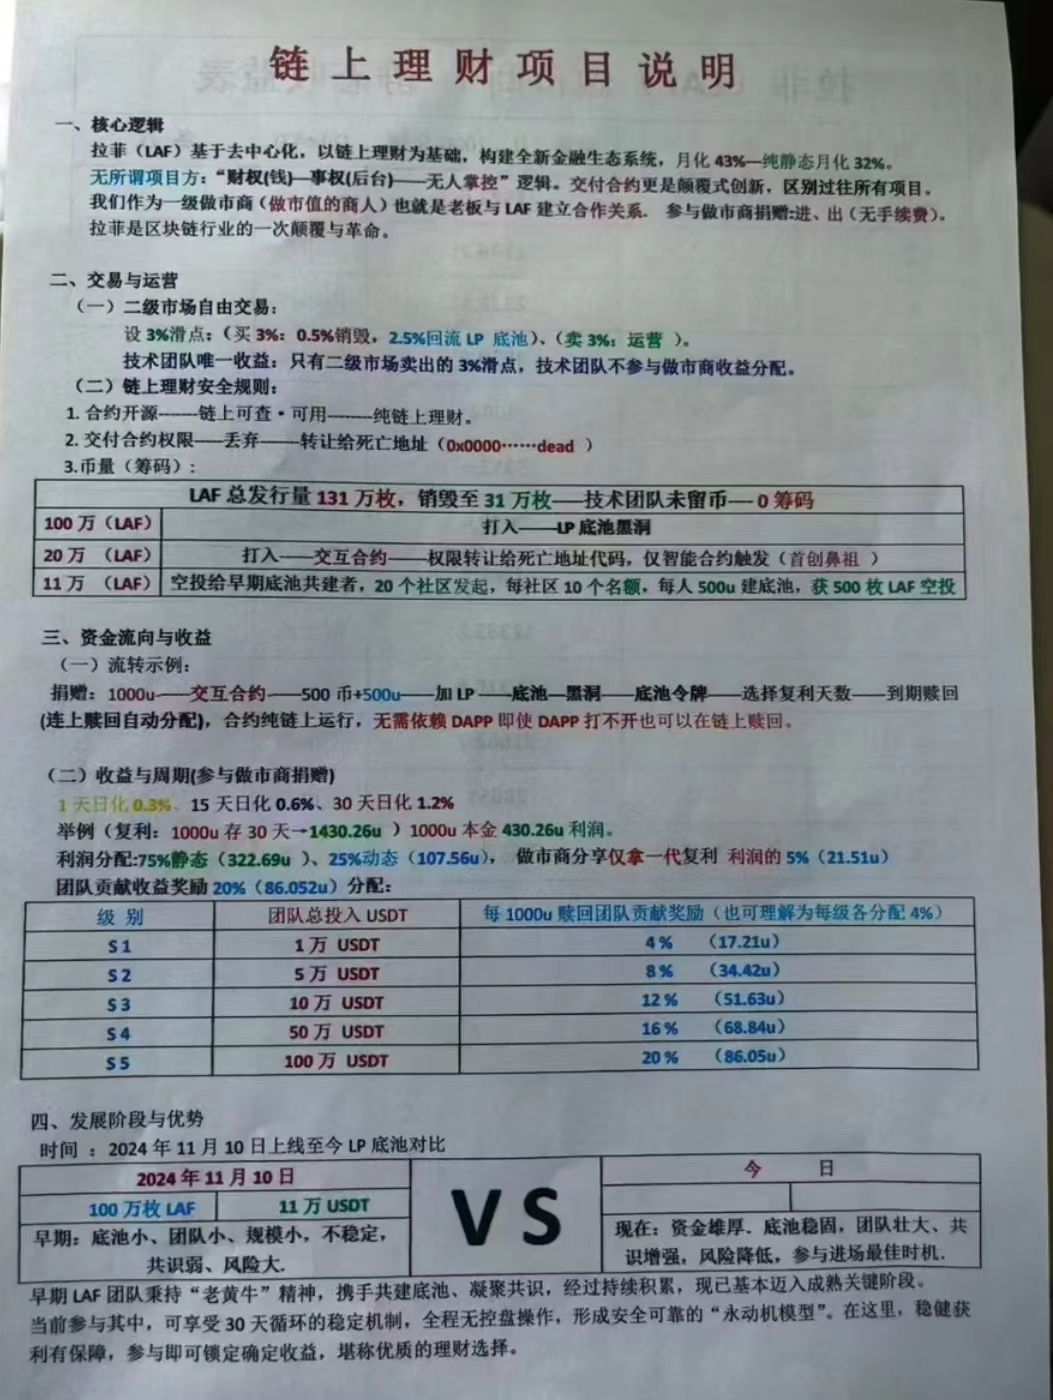 链上理财项目说明
一、核心逻辑
拉菲（LAF）基于去中心化，以链上理财为基础，构建全新金融生态系统，月化 43%—纯静态月化 32%。
无所谓项目方：“财权(钱)—事权(后台)——无人掌控”逻辑。交付合约更是颠覆式创新，区别过往所有项目。
我们作为一级做市商（做市值的商人）也就是老板与 LAF 建立合作关系. 参与做市商捐赠:进、出（无手续费）。
拉菲是区块链行业的一次颠覆与革命。
二、交易与运营
（一）二级市场自由交易：
设 3%滑点：（买 3%：0.5%销毁，2.5%回流 LP 底池）、（卖 3%：运营 ）。
技术团队唯一收益：只有二级市场卖出的 3%滑点，技术团队不参与做市商收益分配。
（二）链上理财安全规则：
1. 合约开源——链上可查·可用——纯链上理财。
2. 交付合约权限——丢弃——转让给死亡地址（0x0000……dead ）
3.币量（筹码）:
LAF 总发行量 131 万枚，销毁至 31 万枚——技术团队未留币—0 筹码
100 万（LAF） 打入——LP 底池黑洞
20 万 （LAF） 打入——交互合约——权限转让给死亡地址代码，仅智能合约触发（首创鼻祖 ）
11 万 （LAF） 空投给早期底池共建者，20 个社区发起，每社区 10 个名额，每人 500u 建底池，获 500 枚 LAF 空投
三、资金流向与收益
（一）流转示例：
捐赠：1000u——交互合约——500 币+500u——加 LP——底池—黑洞——底池令牌——选择复利天数——到期赎回
(连上赎回自动分配)，合约纯链上运行，无需依赖 DAPP 即使 DAPP 打不开也可以在链上赎回。
（二）收益与周期(参与做市商捐赠)
1 天日化 0.3%、15 天日化 0.6%、30 天日化 1.2%
举例（复利：1000u 存 30 天→1430.26u ）1000u 本金 430.26u 利润。
利润分配:75%静态（322.69u ）、25%动态（107.56u）， 做市商分享仅拿一代复利 利润的 5%（21.51u）
团队贡献收益奖励 20%（86.052u）分配：
级 别 团队总投入 USDT 每 1000u 赎回团队贡献奖励（也可理解为每级各分配 4%）
S 1 1 万 USDT 4 % （17.21u）
S 2 5 万 USDT 8 % （34.42u）
S 3 10 万 USDT 12 % （51.63u）
S 4 50 万 USDT 16 % （68.84u）
S 5 100 万 USDT 20 % （86.05u）
四、发展阶段与优势
时间 ：2024 年 11 月 10 日上线至今 LP 底池对比
2024 年 11 月 10 日 VS 今 日
100 万枚 LAF 11 万 USDT
早期：底池小、团队小、规模小，不稳定，
共识弱、风险大.
现在：资金雄厚．底池稳固，团队壮大、共
识增强，风险降低，参与进场最佳时机.
早期 LAF 团队秉持“老黄牛”精神，携手共建底池、凝聚共识，经过持续积累，现已基本迈入成熟关键阶段。
当前参与其中，可享受 30 天循环的稳定机制，全程无控盘操作，形成安全可靠的“永动机模型”。在这里，稳健获
利有保障，参与即可锁定确定收益，堪称优质的理财选择。